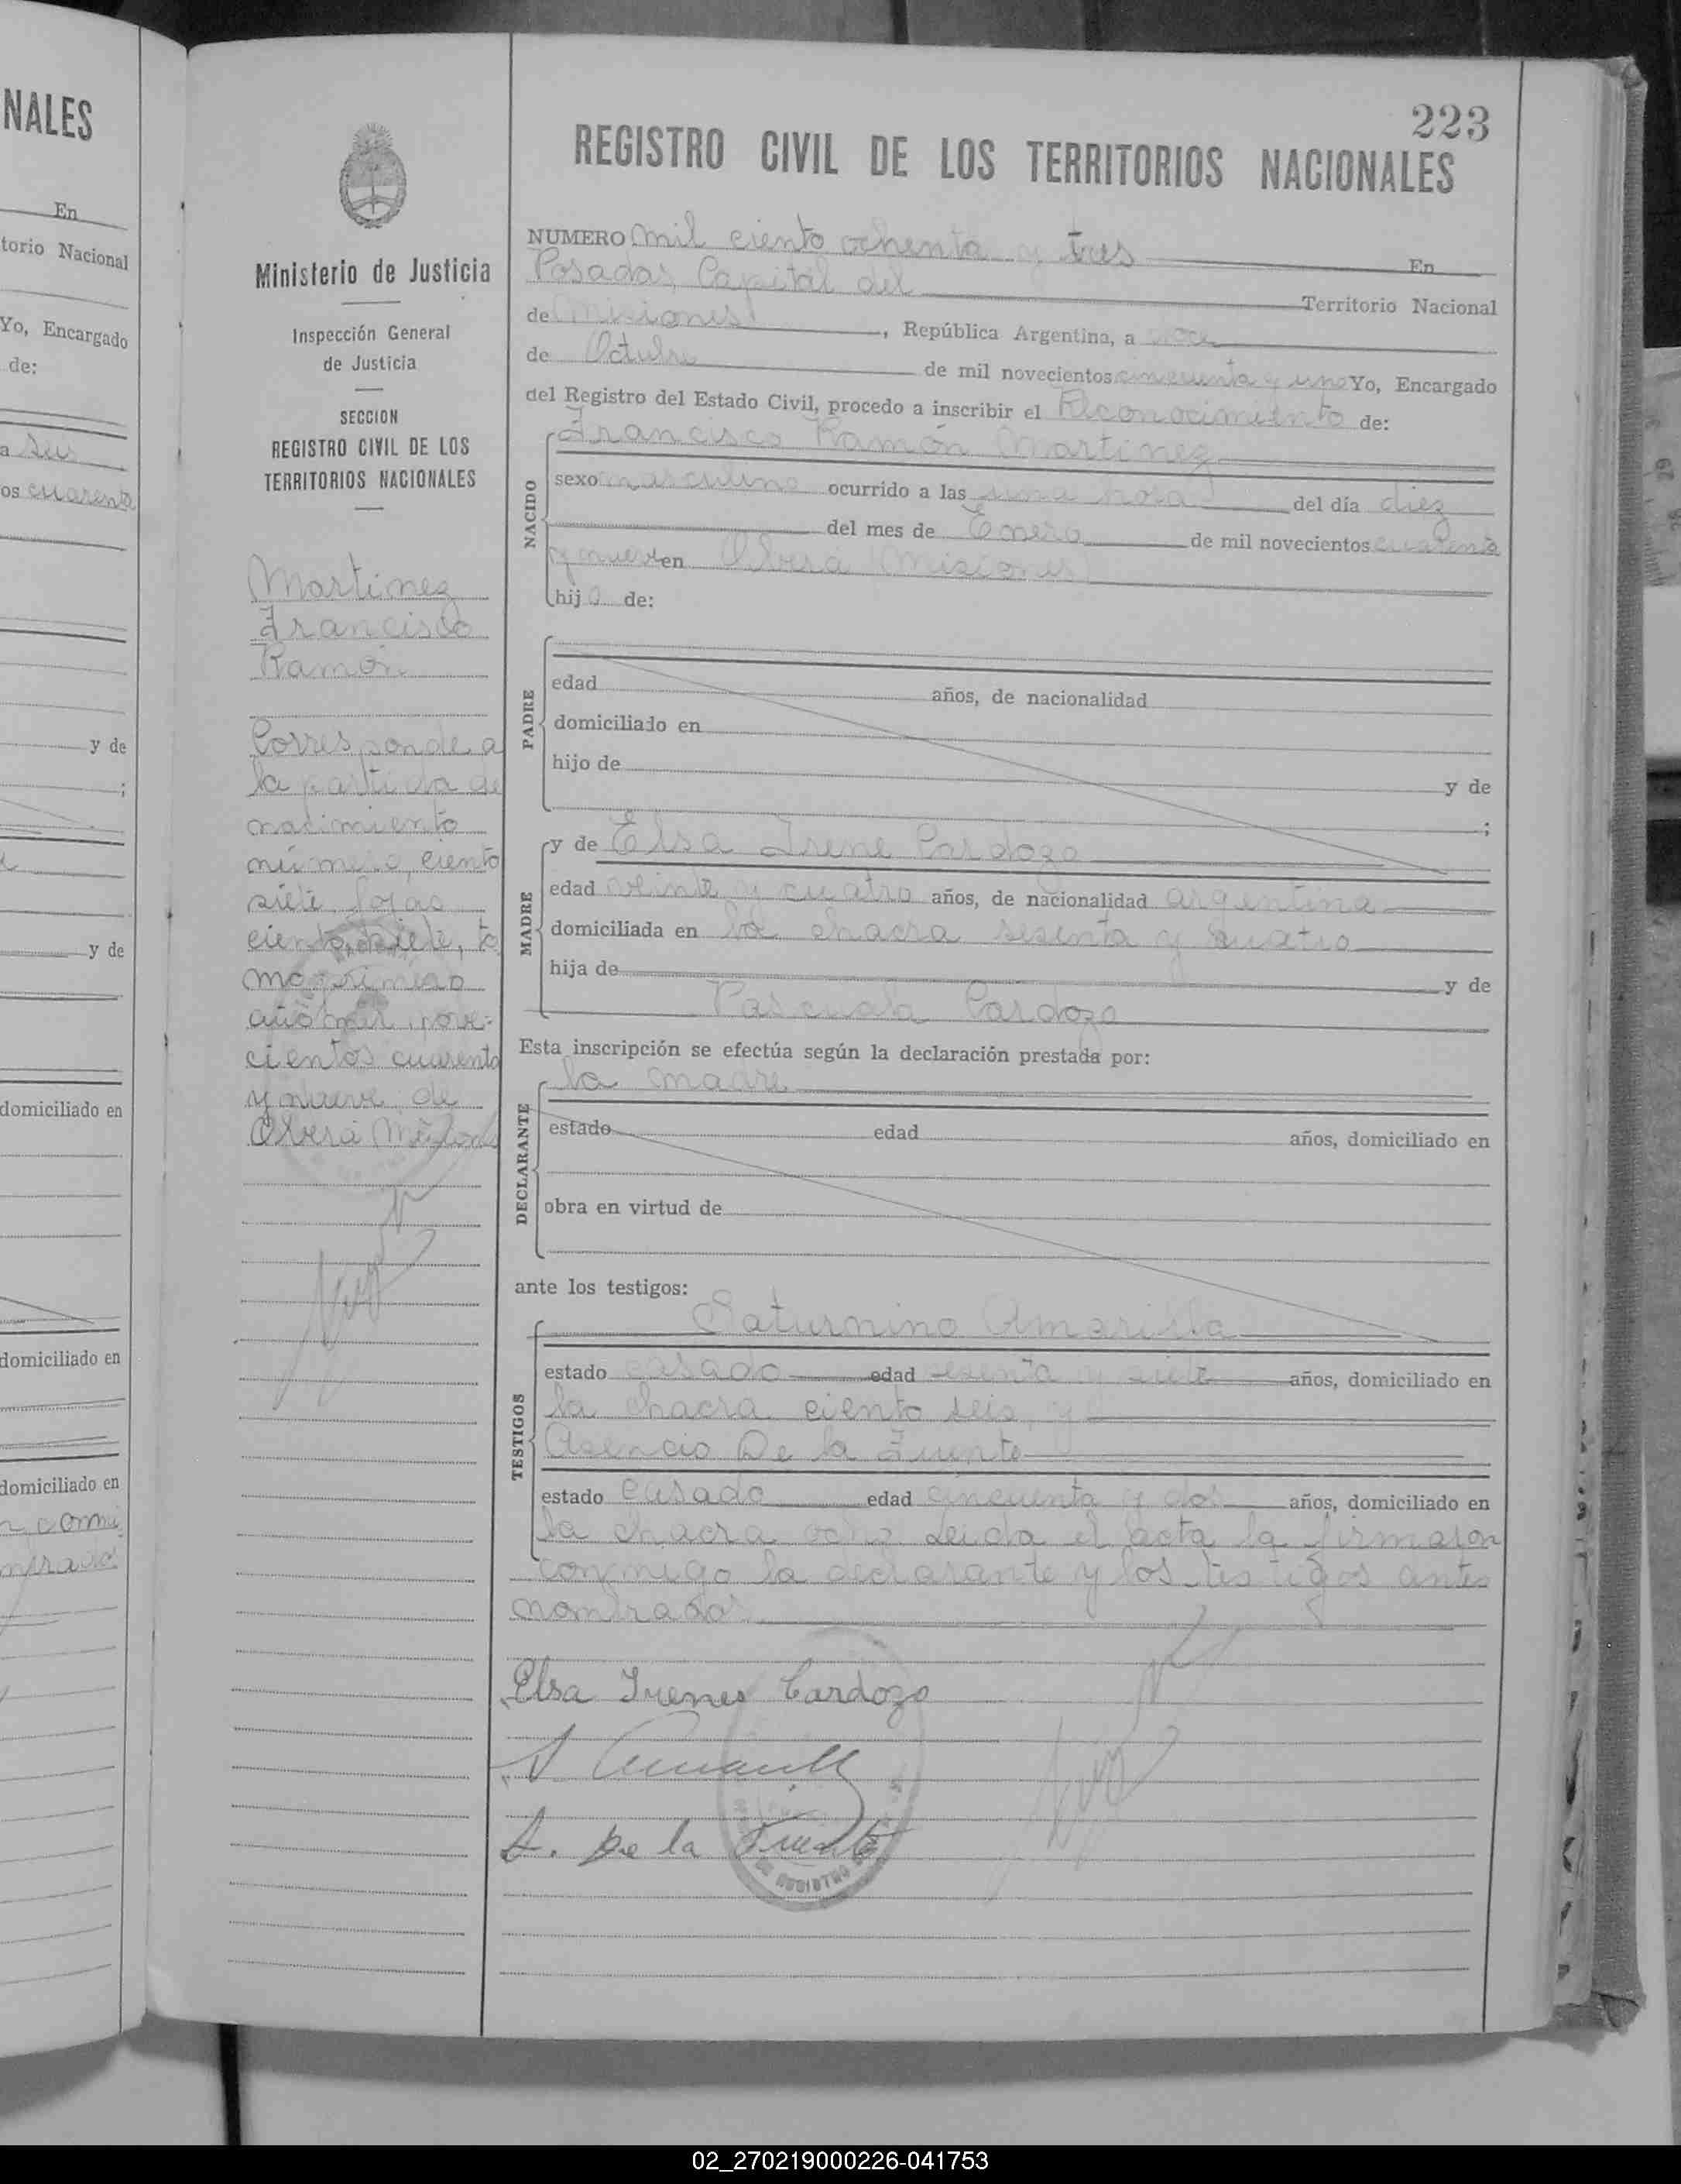 NALES
En
torio Nacional
Yo, Encargado
de:
a sus
os cuarenta
y de
;
y de
domiciliado en
domiciliado en
domiciliado en
223
REGISTRO CIVIL DE LOS TERRITORIOS NACIONALES
Ministerio de Justicia
Inspección General
de Justicia
SECCION
REGISTRO CIVIL DE LOS
TERRITORIOS NACIONALES
Martinez
Francisco
Ramón
Corresponde a
la partida de
nacimiento
número, ciento
siete, fojas
ciento siete, to
mo primero
año mil nove-
cientos cuarenta
y nueve de
Oberá Misiones
NUMERO mil ciento ochenta y tres En
Posadas, Capital del Territorio Nacional
de Misiones, República Argentina, a doce
de Octubre de mil novecientos cincuenta y uno Yo, Encargado
del Registro del Estado Civil, procedo a inscribir el Reconocimiento de:
NACIDO
Francisco Ramón Martinez
sexo masculino ocurrido a las una hora del día diez
del mes de Enero de mil novecientos cuarenta
y nueve en Oberá (Misiones)
hijo de:
PADRE
edad años, de nacionalidad
domiciliado en
hijo de y de
;
MADRE
y de Elsa Irene Cardozo
edad veinte y cuatro años, de nacionalidad argentina
domiciliada en la chacra sesenta y cuatro
hija de y de
Pascuala Cardozo
Esta inscripción se efectúa según la declaración prestada por:
DECLARANTE
la madre
estado edad años, domiciliado en
obra en virtud de
ante los testigos:
TESTIGOS
Saturnino Amarilla
estado casado edad sesenta y siete años, domiciliado en
la chacra ciento seis, y
Asencio De la Fuente
estado casado edad cincuenta y dos años, domiciliado en
la chacra ocho. Leida el acta la firmaron
conmigo la declarante y los testigos antes
nombrados
Elsa Irenes Cardozo
S Amarilla
A. De la Fuente
02_270219000226-041753